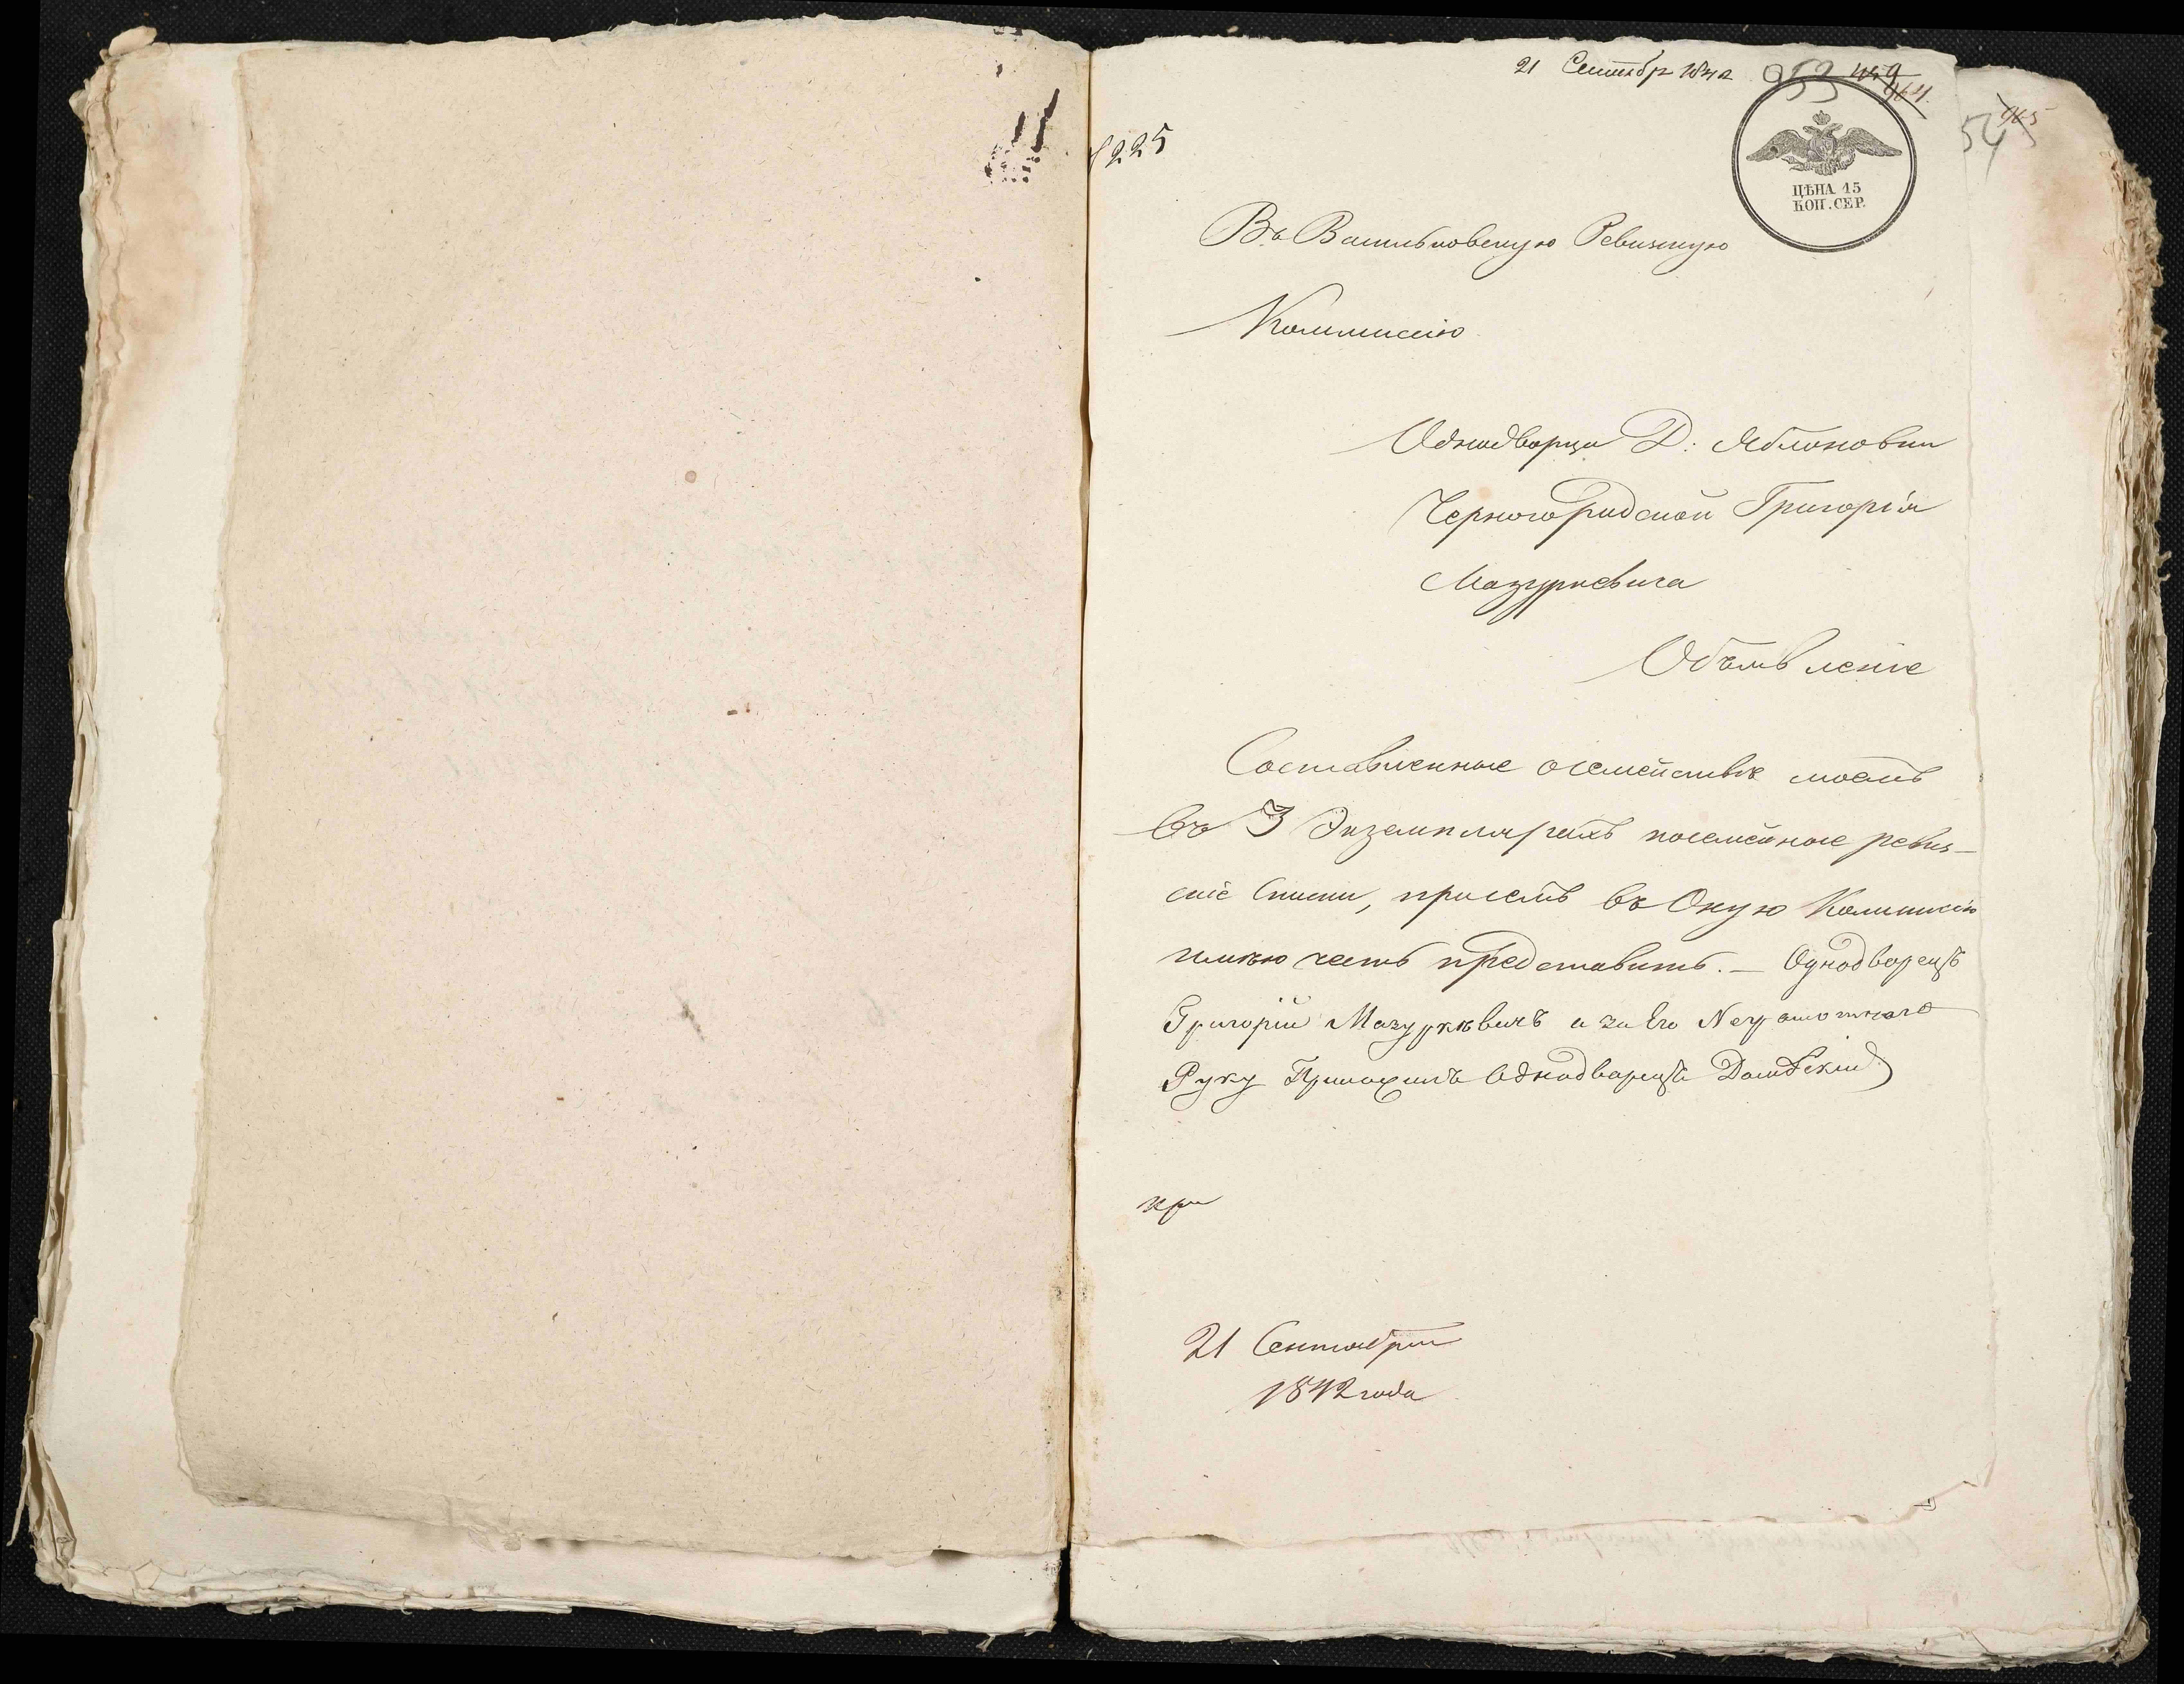 21 Сентябр 1842
53
964
965
54
225
ЦѢНА 15
КОП. СЕР.
Въ Васильковскую Ревизкую
Коммиссію
Однодворца Д: Яблоновки
Григорія
Мазуркевича
Объявленіе
Составленные о семействѣ моемъ
въ 3 Экземплярахъ посемейные ревиз-
скіе Списки, присемъ въ Оную Коммиссію
имѣю честь представить. — Однодворецъ
Григорій Мазуркѣвичъ а за Его Неграмотнаго
Руку Приложилъ Однодворецъ
при
21 Сентября
1842 года